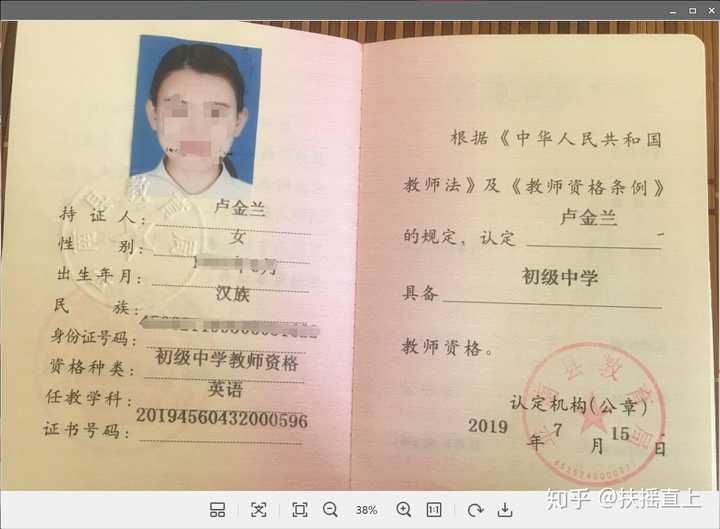 持 证 人： 卢金兰
性 别： 女
出生年月：
民 族： 汉族
身份证号码：
资格种类： 初级中学教师资格
任教学科： 英语
证书号码： 20194560432000596
根据《中华人民共和国
教师法》及《教师资格条例》
的规定，认定 卢金兰
具备 初级中学
教师资格。
认定机构(公章)
2019 年 7 月 15 日
县教育局
38%
1:1
知乎 @扶摇直上